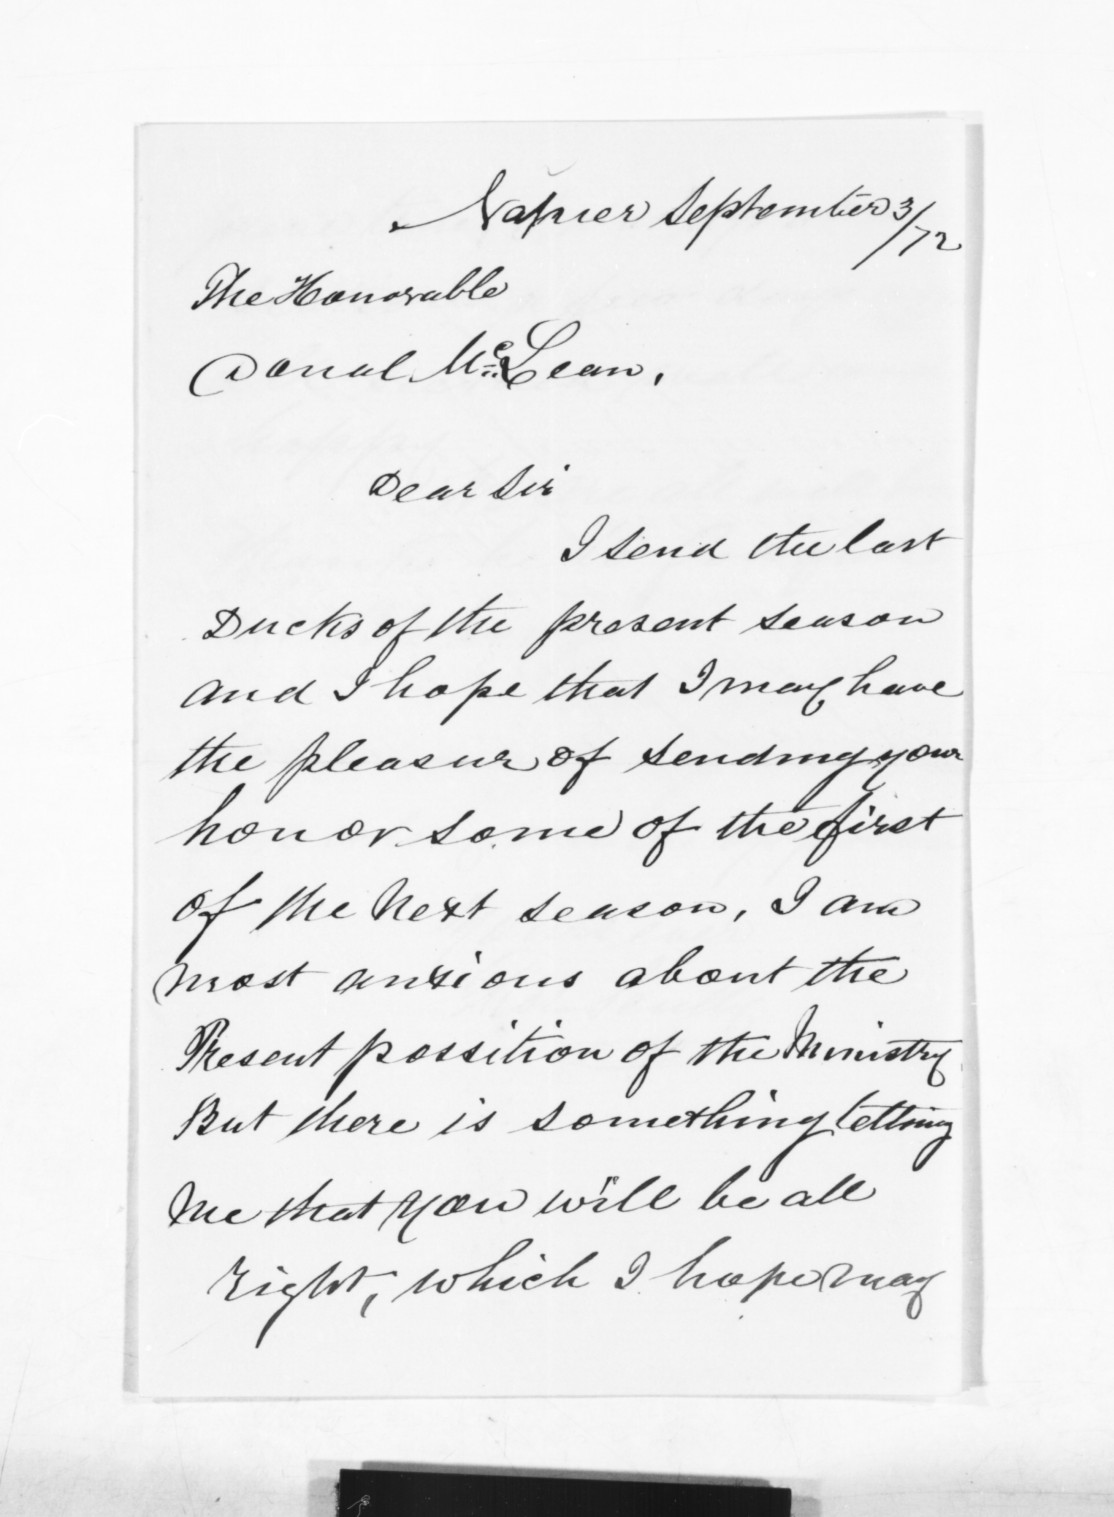 Napier September 3/72
The Honorable
Donal McLean,
Dear Sir
I send the last
Ducks of the present season
and I hope that I may have
the pleasur of sending your
honor some of the first
of the Next season, I am
most anxious about the
Present possition of the Ministry
But there is something telling
Me that You will be all
right, which I hope may